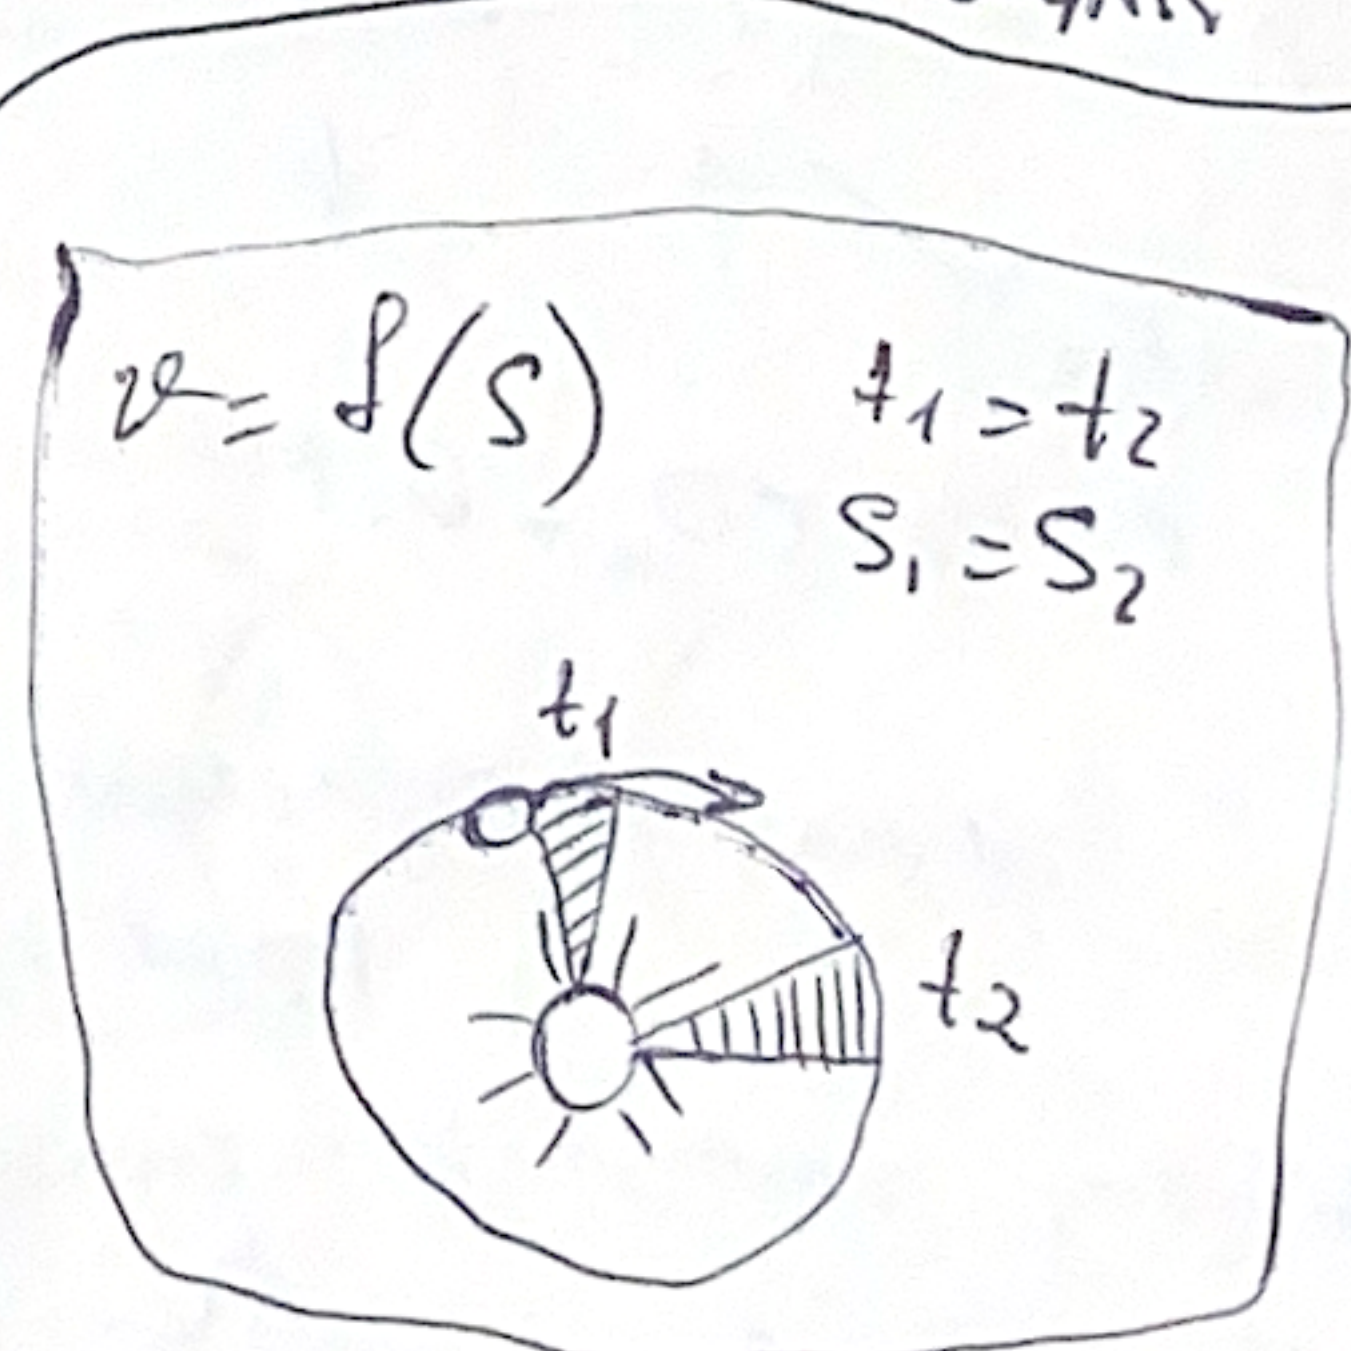 v = f(S)
t1 = t2
S1 = S2
t1
t2